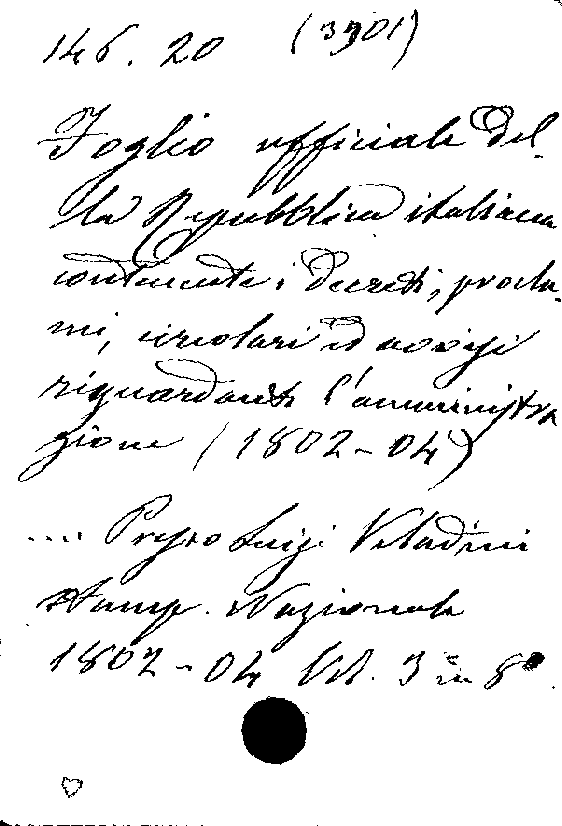 146.20 (3901)
Foglio ufficiale del
la Repubblica italiana
contenente i decreti, procla
mi, circolari ed avvisi
riguardanti l'amministra
zione (1802-04)
.... Presso Luigi Veladini
Stamp. Nazionale
1802-04 Vol. 3 in 8º.